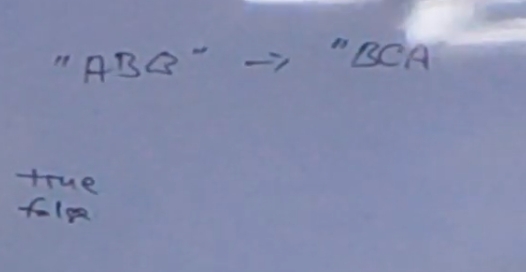 "ABB" -> "BCA
true
false